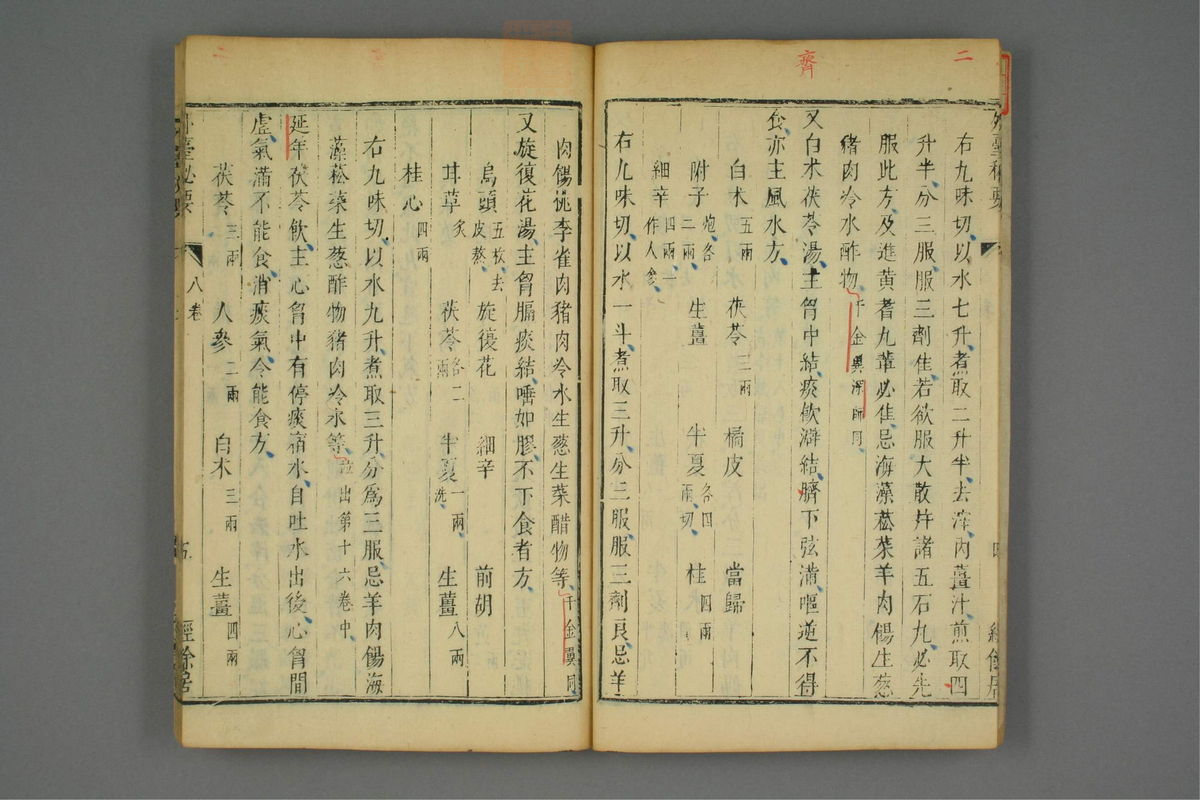 二
齊
右九味切以水七升煮取二升半去滓內薑汁煎取四
升半分三服服三劑佳若欲服大散幷諸五石丸必先
服此方及進黃耆丸輩必佳忌海藻菘菜羊肉餳生葱
豬肉冷水酢物千金翼深師同
又白朮茯苓湯主胷中結痰飲澼結臍下弦滿嘔逆不得
食亦主風水方
白朮五兩 茯苓三兩 橘皮 當歸
附子炮各二兩 生薑 半夏各四兩切 桂四兩
細辛四兩一作人參
右九味切以水一斗煮取三升分三服服三劑良忌羊
肉餳桃李雀肉豬肉冷水生葱生菜醋物等千金翼同
又旋復花湯主胷膈痰結唾如膠不下食者方
烏頭五枚去皮熬 旋復花 細辛 前胡
甘草炙 茯苓各二兩 半夏一兩洗 生薑八兩
桂心四兩
右九味切以水九升煮取三升分爲三服忌羊肉餳海
藻菘菜生葱酢物豬肉冷水等並出第十六卷中
延年茯苓飲主心胷中有停痰宿水自吐水出後心胷間
虛氣滿不能食消痰氣令能食方
茯苓三兩 人參二兩 白朮三兩 生薑四兩
臺秘要
八卷
經餘居